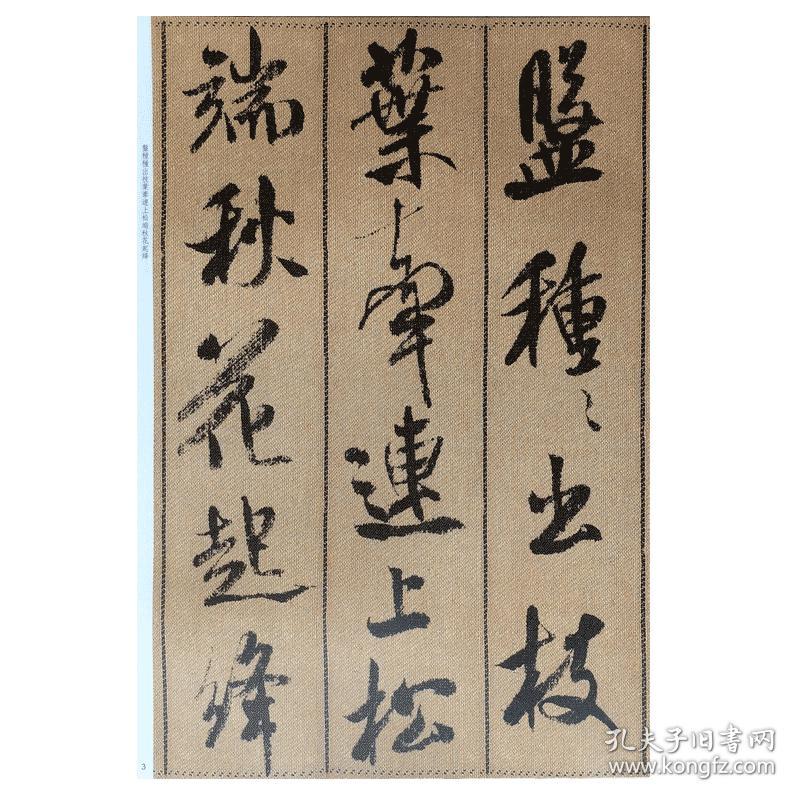 盤種〻出枝
葉牽連上松
端秋花起絳
盤種種出枝葉牽連上松端秋花起絳
3
孔夫子旧书网
www.kongfz.com